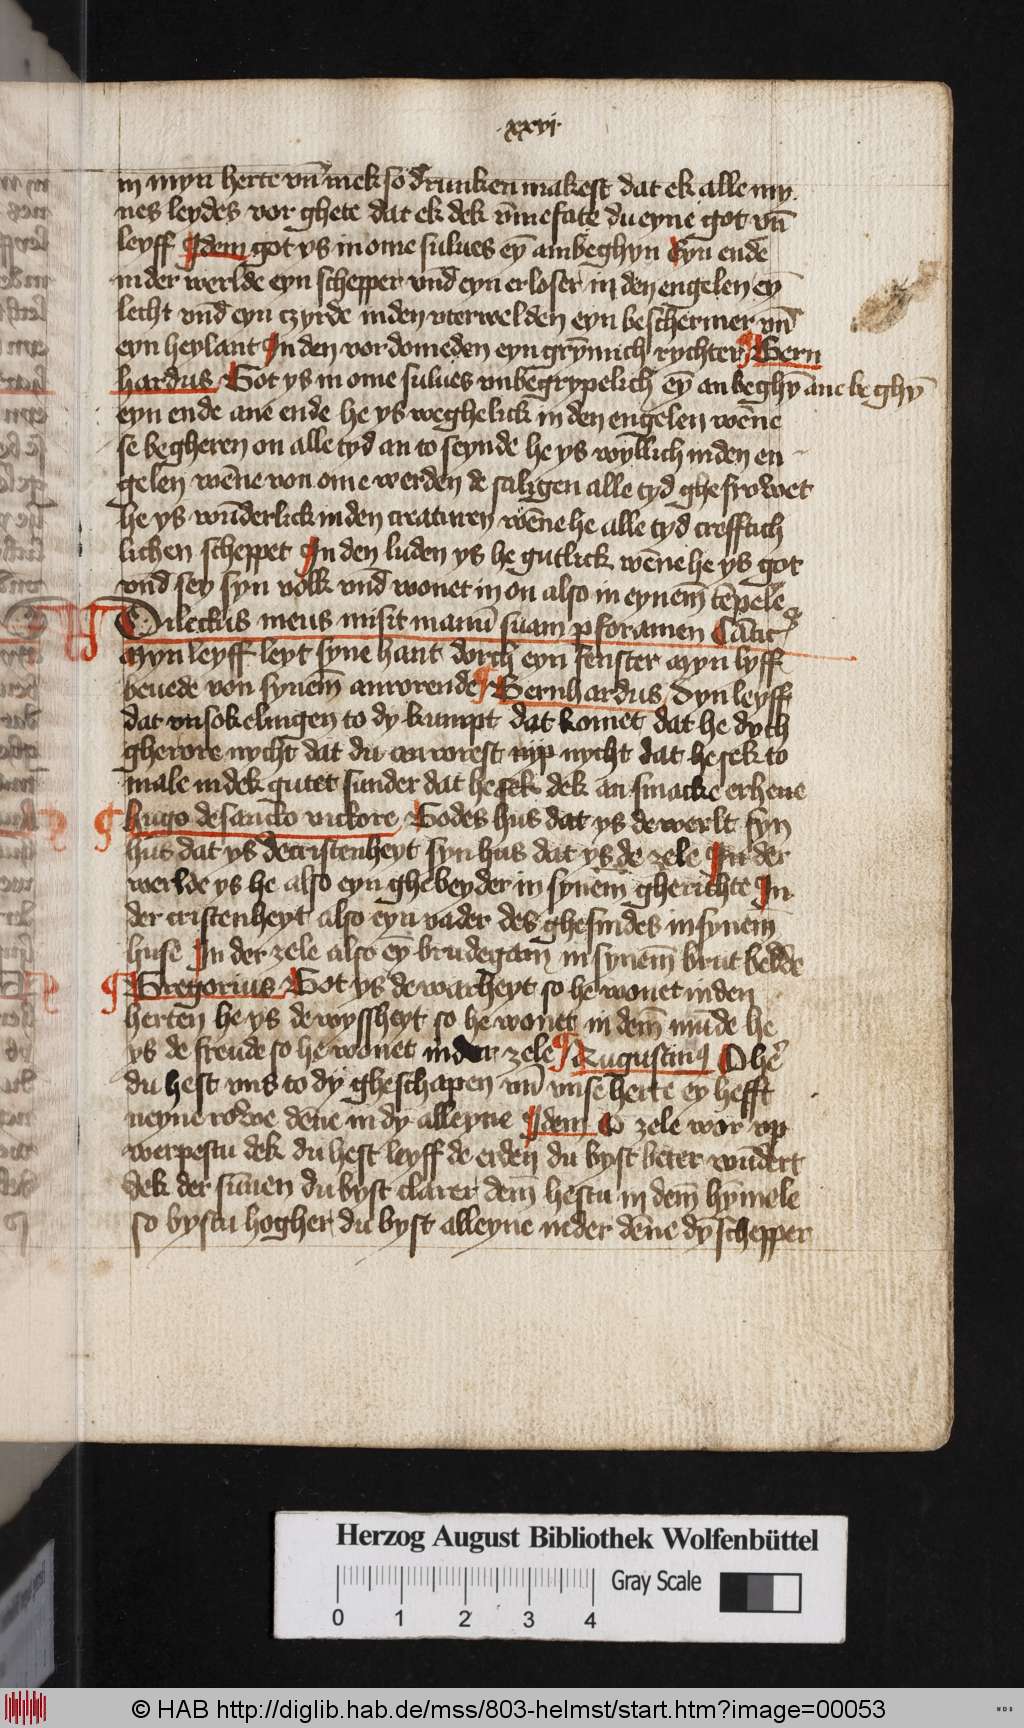 xxvj
in myn herte vn̄ mek so drunken makest dat ek alle my
nes leydes vor ghete dat ek dek vm̄e fate du eyne got vn̄
leyff Idem got ys in ome sulues ey̅ ambeghyn Eyn ende
in der werlde eyn schepper vnd eyn erloser in den engelen ey̅
lecht vnd eyn czyrde in den vterwelden eyn beschermer vn̄
eyn heylant In den vordomeden eyn gry̅mich rychter Bern
hardus Got ys in ome sulues vnbegrypelich ey̅ anbeghy̅ ane beghy̅
eyn ende ane ende he ys weghelick in den engelen wēne
se begheren on alle tyd an to seynde he ys wyllich in den en
gelen wēne von ome werden de saligen alle tyd ghefrowet
he ys wūderlick in den creaturen wēne he alle tyd crefftich
lichen scheppet In den luden ys he gutlick wēne he ys got
vnd sey syn volk vnd wonet in on also in eynem̄ tēpele
Dilectus meus misit manū suam p foramen Cātic
Myn leyff leyt syne hant dorch eyn fenster Myn lyff
beuede von synem̄ anrorende Bernhardus Dyn leyff
dat vnsokelingen to dy kumpt dat komet dat he dych
gherore nycht dat du on rorest nycht dat he sek to
male in dek gutet sunder dat he sek dek an smacke erheue
Hugo de sancto victore Godes hus dat ys de werlt syn
hus dat ys de cristenheyt syn hus dat ys de zele In der
werlde ys he also eyn ghebeyder in synem gherichte In
der cristenheyt also eyn vader des ghesindes in synem̄
huse In der zele also ey̅ brudegam in synem̄ brut bedde
Gregorius Got ys de warheyt so he wonet in den
herten he ys de wyssheyt so he wonet in dem̄ mūde he
ys de freude so he wonet in der zele Augustinus O he
du hest vns to dy gheschapen vn̄ vnse herte ey hefft
neyne rowe dēne in dy alleyne Idem O zele wor vp
werpestu dek du hest leyff de erden du byst beter wūdert
dek der sūnen du byst clarer dem̄ hestu in dem̄ hy̅mele
so bystu hogher du byst alleyne neder dēne dy schepper
Herzog August Bibliothek Wolfenbüttel
Gray Scale
0 1 2 3 4
© HAB http://diglib.hab.de/mss/803-helmst/start.htm?image=00053